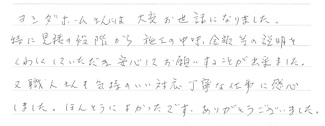 ヨシダホームさんには大変お世話になりました。
特に見積の段階から施工の中味、金額等の説明を
くわしくしていただき安心してお願いすることが出来ました。
又職人さんも気持のいい対応、丁寧な仕事に感心
しました。ほんとうによかったです。ありがとうございました。